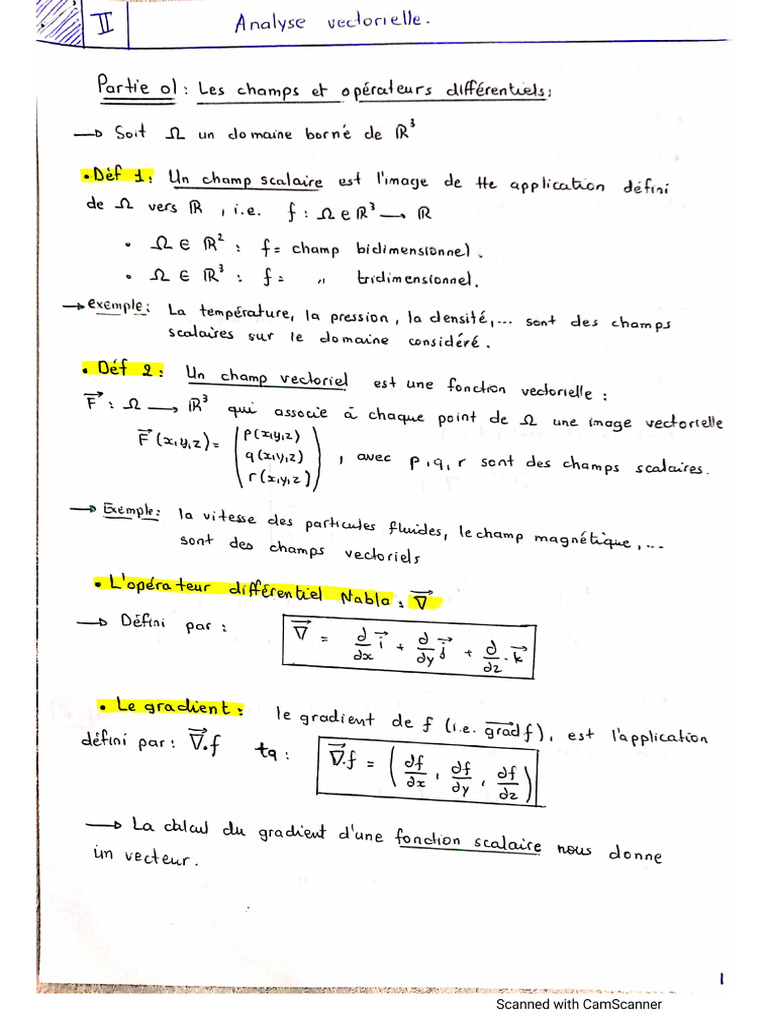 II Analyse vectorielle.
Partie 01 : Les champs et opérateurs différentiels :
→ Soit Ω un domaine borné de ℝ³
• Déf 1 : Un champ scalaire est l'image de tte application défini
de Ω vers ℝ , i.e. f : Ω ∈ ℝ³ → ℝ
• Ω ∈ ℝ² : f = champ bidimensionnel .
• Ω ∈ ℝ³ : f = " tridimensionnel .
→ exemple : La température, la pression, la densité, ... sont des champs
scalaires sur le domaine considéré .
• Déf 2 : Un champ vectoriel est une fonction vectorielle :
F⃗ : Ω → ℝ³ qui associe à chaque point de Ω une image vectorielle
F⃗ (x,y,z) = ( p(x,y,z) q(x,y,z) r(x,y,z) ) , avec p, q, r sont des champs scalaires.
→ Exemple : la vitesse des particules fluides, le champ magnétique, ...
sont des champs vectoriels
• L'opérateur différentiel Nabla : ∇⃗
→ Défini par : ∇⃗ = ∂/∂x i⃗ + ∂/∂y j⃗ + ∂/∂z . k⃗
• Le gradient : le gradient de f (i.e. grad⃗ f), est l'application
défini par : ∇⃗.f tq : ∇⃗.f = ( ∂f/∂x , ∂f/∂y , ∂f/∂z )
→ La calcul du gradient d'une fonction scalaire nous donne
un vecteur .
1
Scanned with CamScanner